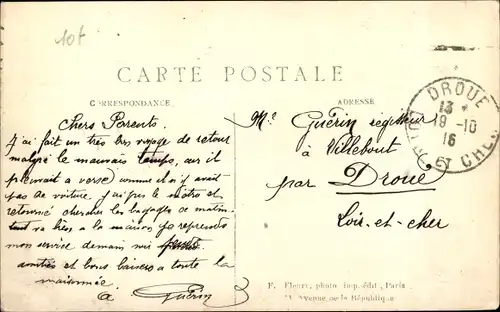 10f
CARTE POSTALE
CORRESPONDANCE
ADRESSE
Chers Parents.
J'ai fait un très bon voyage de retour
malgré le mauvais temps, car il
pleuvait a verse comme il n'y avait
pas de voiture j'ai pris le métro et
retourné chercher les bagages ce matin.
tout va bien a la maison je reprends
mon service demain
amitiés et bons baisers a toute la
maisonnée.
a Guérin
Mr Guérin régisseur
à Villebout
par Droué
Loir-et-cher
DROUÉ
13 *
19-10
16
LOIR ET CHER
F. Fleury, photo imp. édit., Paris
Avenue de la République